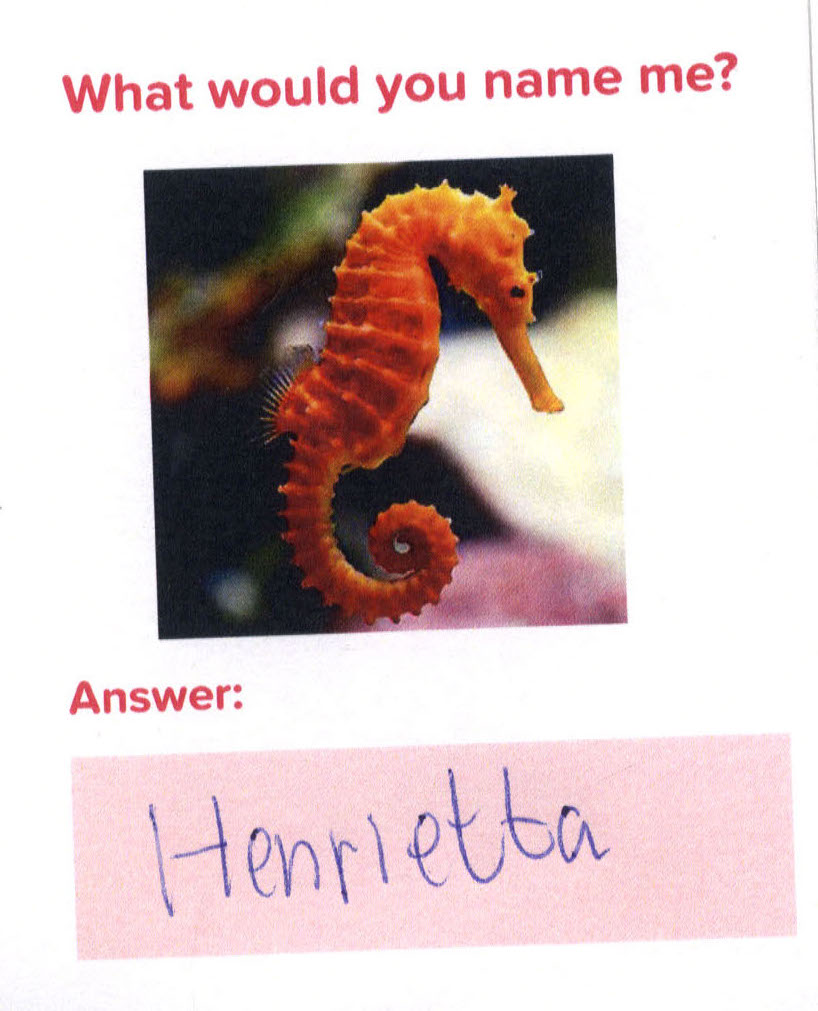 What would you name me?
Answer:
Henrietta